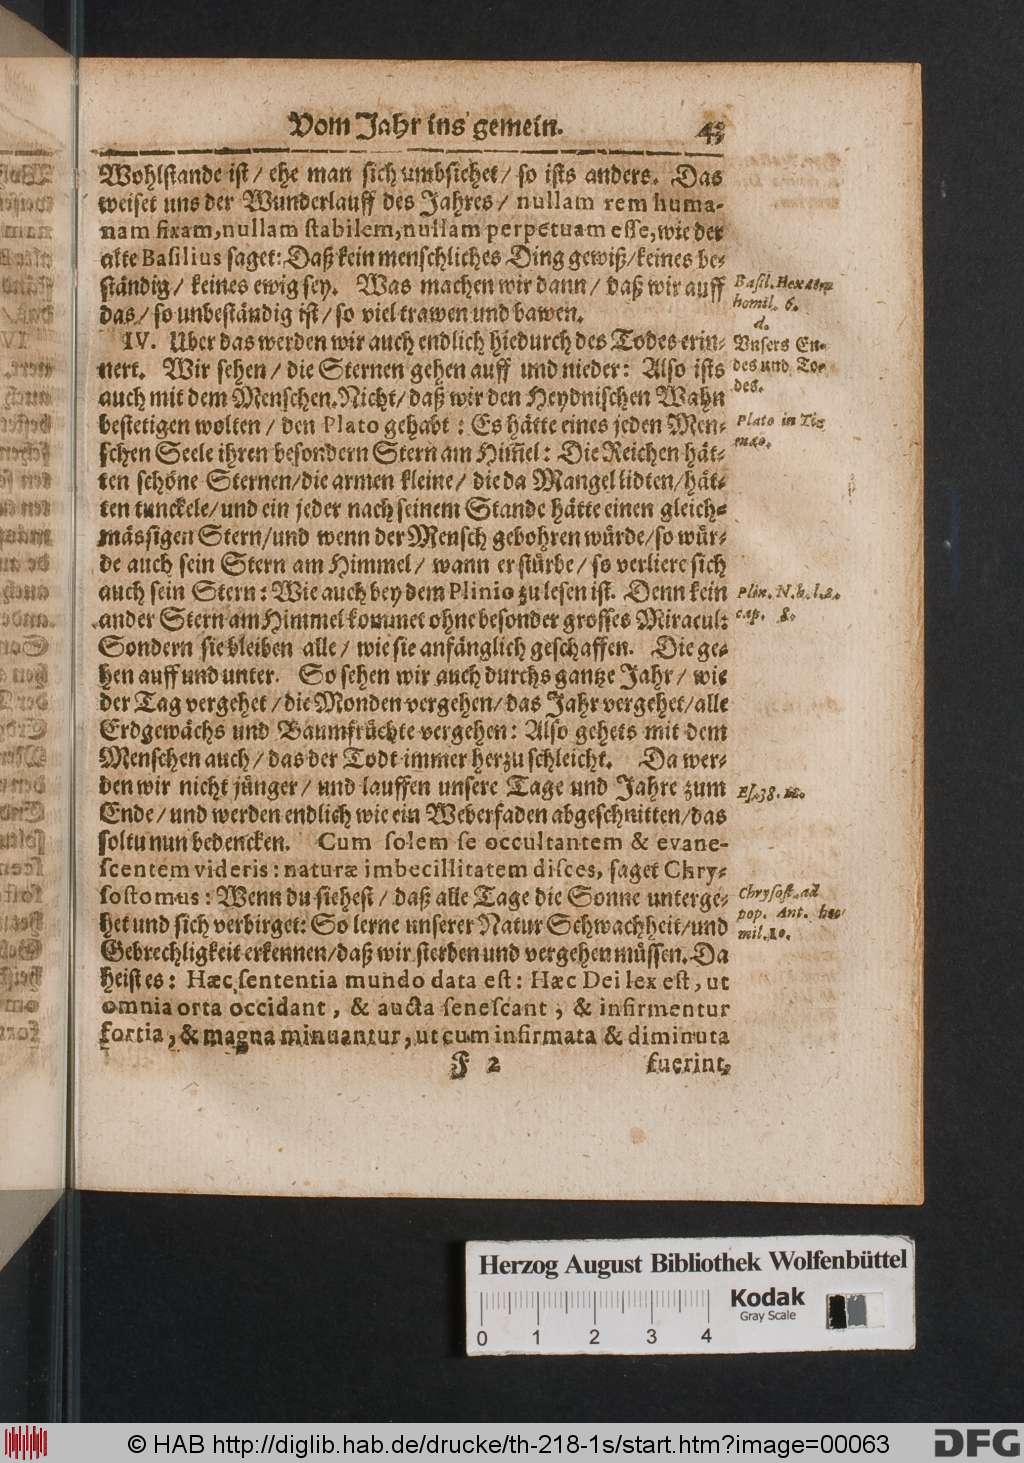 Vom Jahr ins gemein.
Wohlstande ist / ehe man sich umbsiehet / so ists anders. Das
weiset uns der Wunderlauff des Jahres / nullam rem huma-
nam fixam, nullam stabilem, nullam perpetuam esse, wie der
alte Basilius saget: Daß kein menschliches Ding gewiß / keines be-
ständig / keines ewig sey. Was machen wir dann / daß wir auff
das / so unbeständig ist / so viel trawen und bawen.
Basil. Hexaem.
homil. 6.
d.
IV. Uber das werden wir auch endlich hiedurch des Todes erin-
nert. Wir sehen / die Sternen gehen auff und nieder: Also ists
auch mit dem Menschen. Nicht / daß wir den Heydnischen Wahn
bestetigen wolten / den Plato gehabt: Es hätte eines jeden Men-
schen Seele ihren besondern Stern am Him̃el: Die Reichen hät-
ten schöne Sternen / die armen kleine / die da Mangel lidten / hät-
ten tunckele / und ein jeder nach seinem Stande hätte einen gleich-
mässigen Stern / und wenn der Mensch gebohren würde / so wür-
de auch sein Stern am Himmel / wann er stürbe / so verliere sich
auch sein Stern: Wie auch bey dem Plinio zu lesen ist. Denn kein
ander Stern am Himmel kommet ohne besonder grosses Miracul:
Sondern sie bleiben alle / wie sie anfänglich geschaffen. Die ge-
hen auff und unter. So sehen wir auch durchs gantze Jahr / wie
der Tag vergehet / die Monden vergehen / das Jahr vergehet / alle
Erdgewächs und Baumfrüchte vergehen: Also gehets mit dem
Menschen auch / das der Todt immer herzu schleicht. Da wer-
den wir nicht jünger / und lauffen unsere Tage und Jahre zum
Ende / und werden endlich wie ein Weberfaden abgeschnitten / das
soltu nun bedencken. Cum solem se occultantem & evane-
scentem videris: naturæ imbecillitatem disces, saget Chry-
sostomus: Wenn du siehest / daß alle Tage die Sonne unterge-
het und sich verbirget: So lerne unserer Natur Schwachheit / und
Gebrechligkeit erkennen / daß wir sterben und vergehen müssen. Da
heist es: Hæc sententia mundo data est: Hæc Dei lex est, ut
omnia orta occidant, & aucta senescant, & infirmentur
fortia, & magna minuantur, ut cum infirmata & diminuta
Unsers En-
des und To-
des.
Plato in Ti-
mæo.
Plin. N. h. l. 2.
cap. 8.
Es. 38.
Chrysost. ad
pop. Ant. ho-
mil. 10.
F 2
fuerint,
Herzog August Bibliothek Wolfenbüttel
Kodak
Gray Scale
0 1 2 3 4
© HAB http://diglib.hab.de/drucke/th-218-1s/start.htm?image=00063
DFG